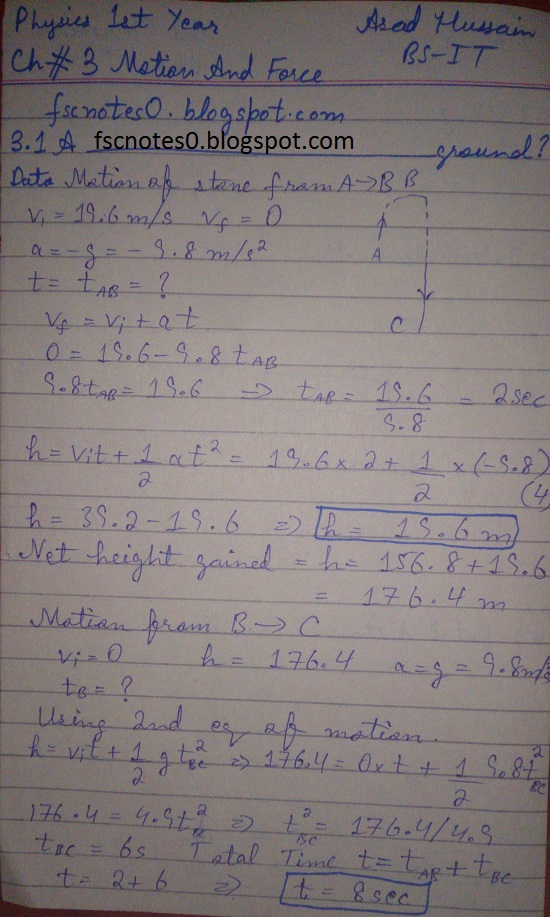 Physics 1st Year Asad Hussain
BS-IT
Ch# 3 Motion And Force
fscnotes0.blogspot.com
3.1 A fscnotes0.blogspot.com ground?
Data Motion of stone from A→B B
vi = 19.6 m/s vf = 0
a = -g = - 9.8 m/s²
A
t = tAB = ?
vf = vi + at
C
0 = 19.6 - 9.8 tAB
9.8tAB = 19.6 => tAB = 19.6/9.8 = 2sec
h = vit + 1/2 at² = 19.6 x 2 + 1/2 x (-9.8)
(4)
h = 39.2 - 19.6 => h = 19.6 m
Net height gained = h = 156.8 + 19.6
= 176.4 m
Motion from B → C
vi = 0 h = 176.4 a = g = 9.8m/s
tB = ?
Using 2nd eq of motion.
h = vit + 1/2 g tBC² => 176.4 = 0xt + 1/2 9.8tBC²
176.4 = 4.9t² => tBC² = 176.4/4.9
tBC = 6s Total Time t = tAB + tBC
t = 2+6 => t = 8sec